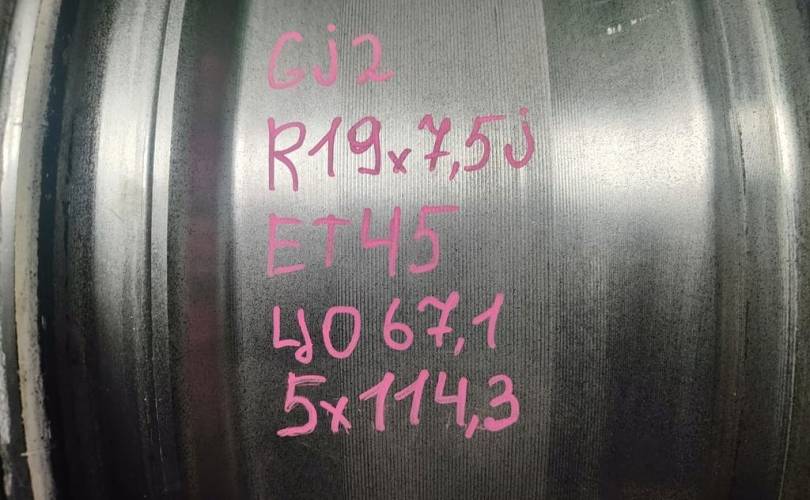 Gj2
R19x7,5j
ET45
ЦО 67,1
5x114,3